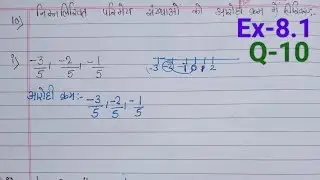 10) निम्नलिखित परिमेय संख्याओं को आरोही क्रम में लिखिए:-
Ex-8.1
Q-10
i) -3/5, -2/5, -1/5
-3 -2 -1 0 1 2
आरोही क्रम:- -3/5, -2/5, -1/5